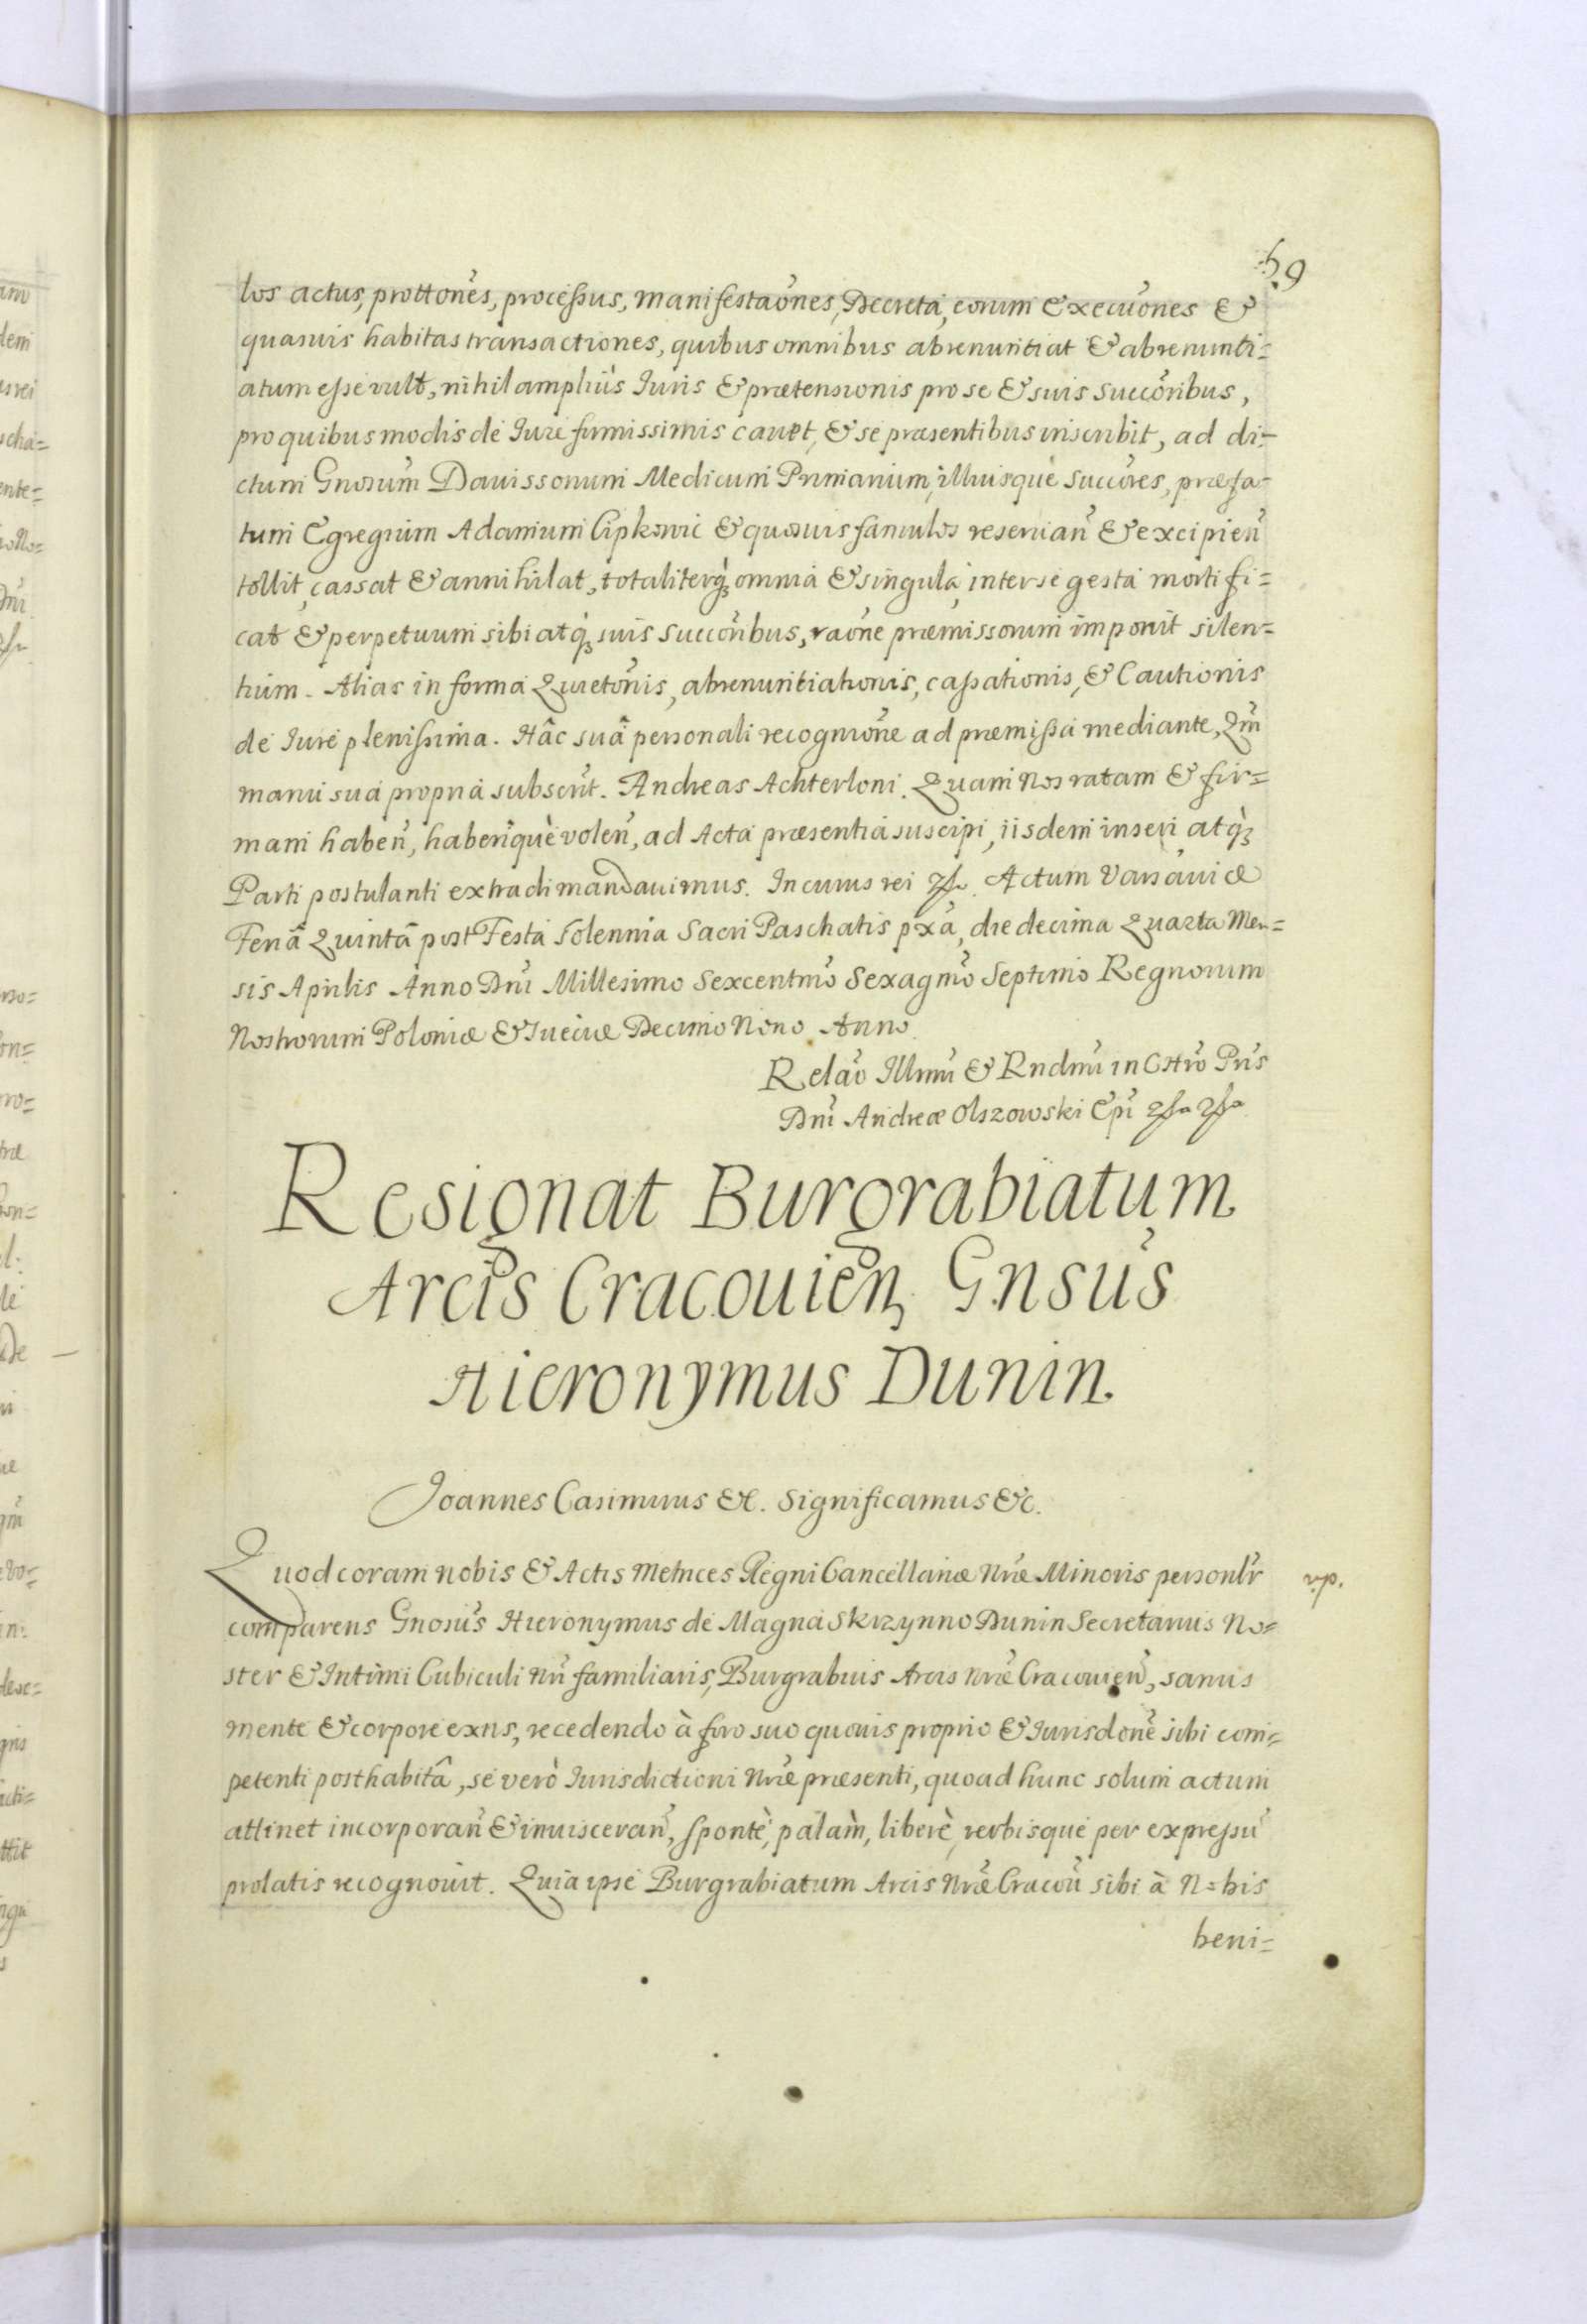 59
los actus, prottones, processus, manifestaōnes, Decreta, eorum Execuōnes &
quasuis habitas transactiones, quibus omnibus abrenuntiat & abrenunti=
atum esse vult, nihil ampliùs Iuris & prætensionis pro se & suis succōribus,
pro quibus modis de Iure firmissimis cauet, & se præsentibus inscribit, ad di=
ctum Gnosum̃ Dauissonum Medicum Primarium, illiusque succōres, præfa=
tum Egregium Adamum Cipkowic & quosuis famulos reseruan̄ & excipien̄
tollit, cassat & annihilat, totaliterq; omnia & singula, inter se gesta mortifi=
cat & perpetuum sibi atq; suis succōribus, raōne præmissorum imponit silen=
tium. Alias in forma Quietōnis, abrenuntiationis, cassationis, & Cautionis
de Iure plenissima. Hâc suâ personali recogniōne ad præmissa mediante, Qm̃
manu sua propria subscrit̃. Andreas Achterloni. Quam Nos ratam & fir=
mam haben̄, haberique volen̄, ad Acta præsentia suscipi, iisdem inseri, atq;
Parti postulanti extradi mandauimus. In cuius rei Actum Varsauiæ
Feriâ Quintâ post Festa Solennia Sacri Paschatis pxa, die decima Quarta Men=
sis Aprilis Anno Dnĩ Millesimo Sexcentmõ Sexagmõ Septimo Regnorum
Nostrorum Poloniæ & Sueciæ Decimo Nono Anno.
Relaō Illmĩ & Rndmĩ in Chrõ Prĩs
Dnĩ Andreæ Olszowski Epĩ
Resignat Burgrabiatum
Arcis Cracouien̄ Gnsus
Hieronymus Dunin.
Joannes Casimirus &c. Significamus &c.
Quod coram nobis & Actis Metrices Regni Cancellariæ Nræ Minoris personlr̃
comparens Gnosus Hieronymus de Magna Skrzynno Dunin Secretarius No=
ster & Intimi Cubiculi Nrĩ familiaris, Burgrabius Arcis Nræ Cracouien̄, sanus
mente & corpore exns, recedendo à foro suo quouis proprio & Iurisdōne sibi com=
petenti posthabitâ, se verò Iurisdictioni Nræ præsenti, quoad hunc solum actum
attinet incorporan̄ & inuisceran̄, spontè, palàm, liberè, verbisque per expressũ
prolatis recognouit. Quia ipse Burgrabiatum Arcis Nræ Cracou̅ sibi à Nobis
beni=